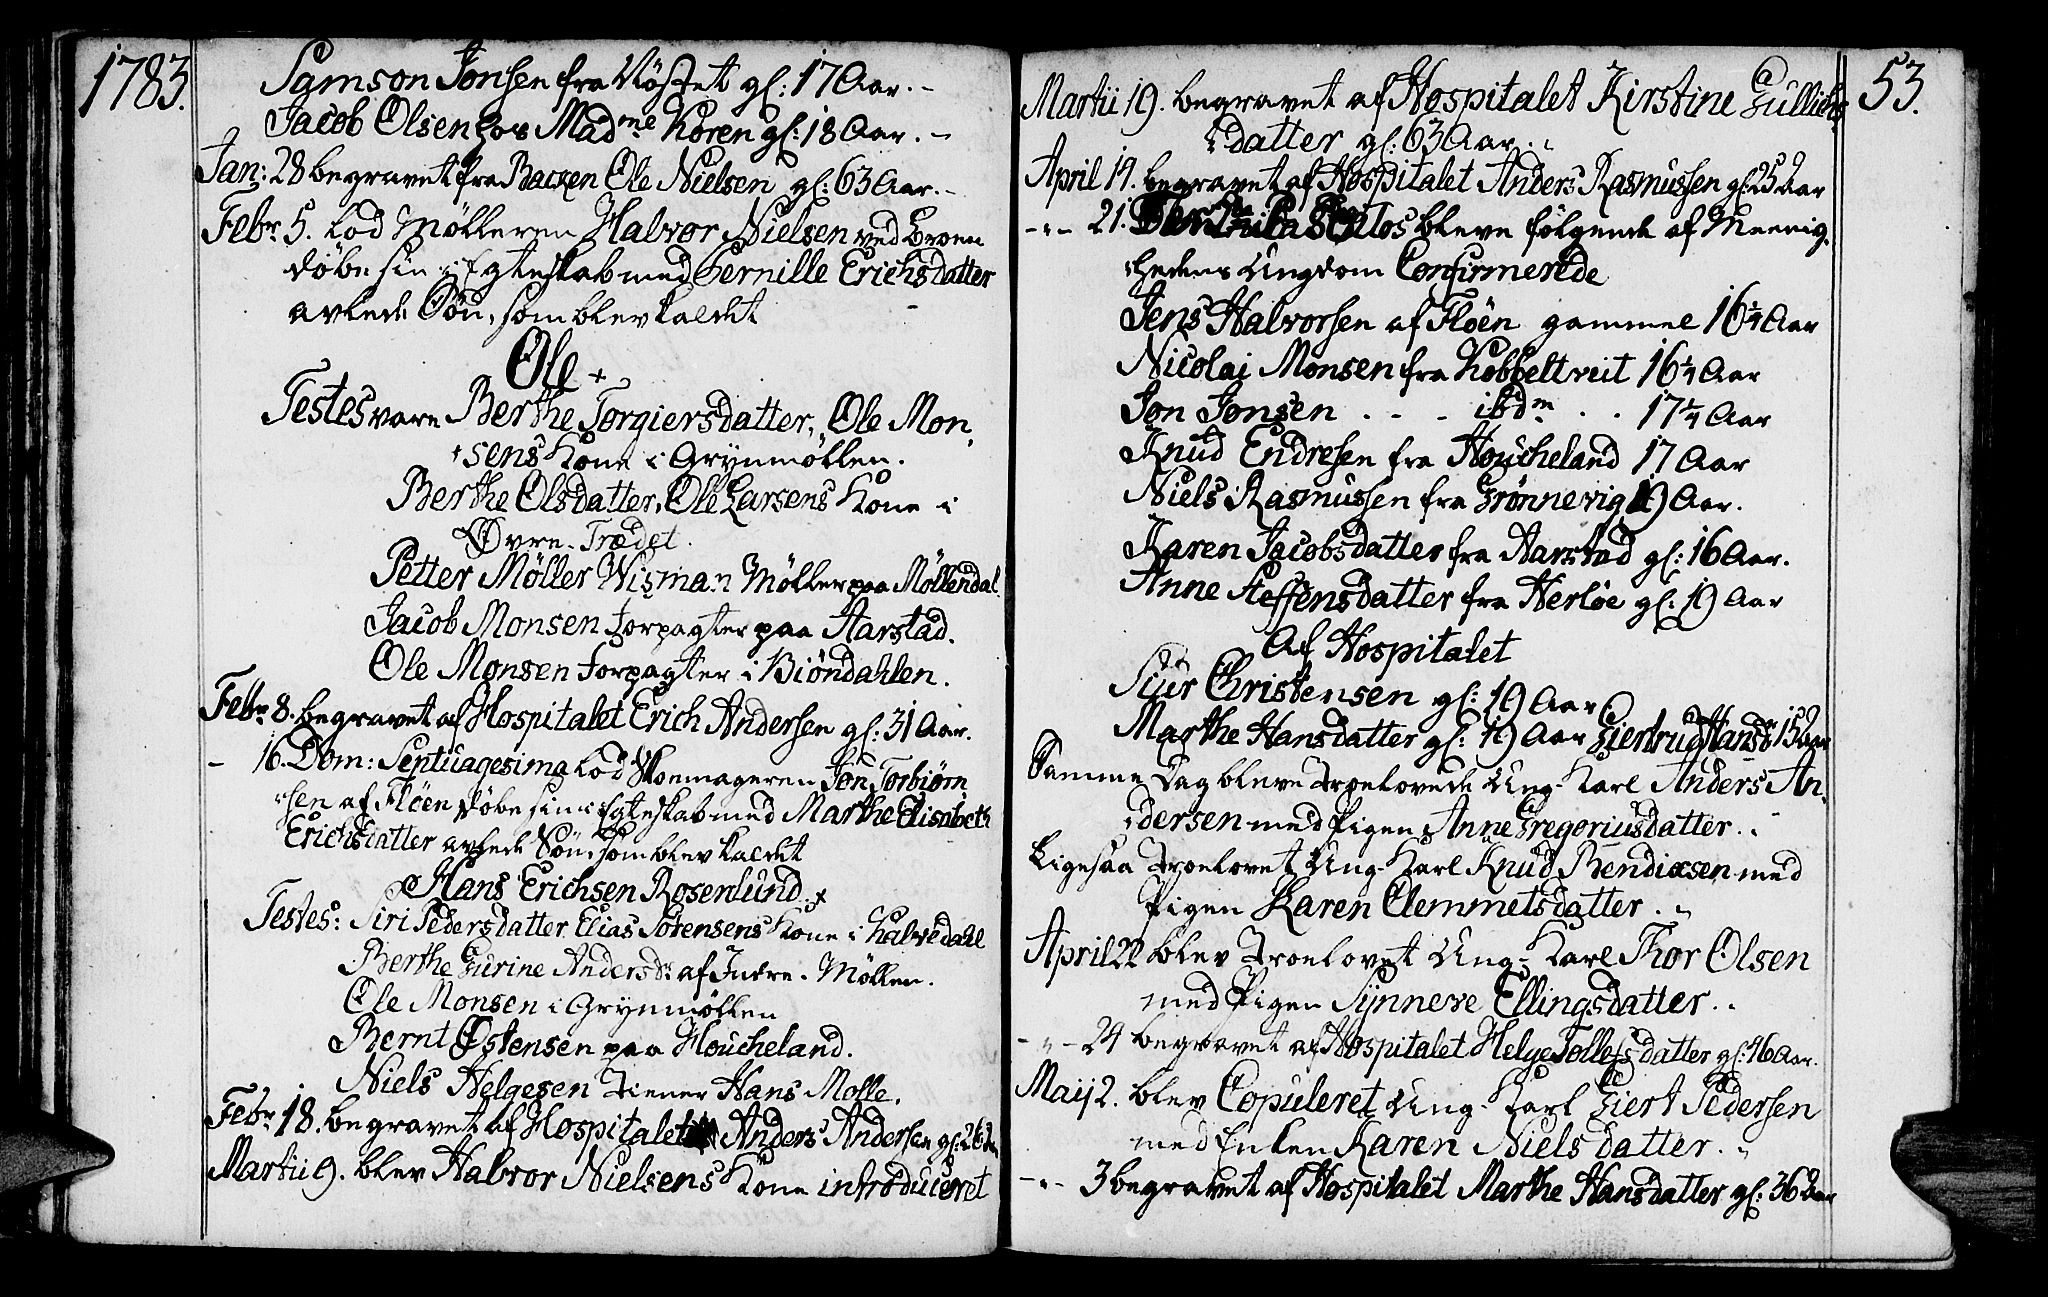 1783.
Samson Jonsen fra Nöstet gl: 17 Aar.
Jacob Olsen hos Madme Koren gl: 18 Aar.
Jan: 28 begravet fra Backen Ole Nielsen gl: 63 Aar.
Febr 5. Lod Mölleren Halvor Nielsen ved Broen
döbe sin i Egteskab med Pernille Erichsdatter
avlede Sön, som blev kaldet
Ole
Testes vare Berthe Torgiersdatter, Ole Mon,
sens Kone i Grynmöllen.
Berthe Olsdatter, Ole Larsens Kone i
Övre-Trædet.
Petter Möller Wisman Möller paa Möllendal.
Jacob Monsen Forpagter paa Aarstad.
Ole Monsen Forpagter i Biöndahlen.
Febr 8. begravet af Hospitalet Erich Andersen gl: 31 Aar.
- 16. Dom: Septuagesima lod Skoemageren Jon Torbiörn
sen af Flöen döbe sin i Egteskab med Marthe Elisabeth
Erichsdatter avlede Sön, som blev kaldet
Hans Erichsen Rosenlund
Testes: Siri Pedersdatter Elias Sörensens Kone i Kalvedahl
Berthe Gurine Andersdr af Indre-Möllen.
Ole Monsen i Grynmöllen
Bernt Östensen paa Houcheland.
Niels Helgesen tiener Hans Molle.
Febr 18. begravet af Hospitalet Anders Andersen gl: 26 Aar
Martii 9. blev Halvor Nielsens Kone introduceret
53.
Martii 19. begravet af Hospitalet Kirstine Gullichs
datter gl: 63 Aar.
April 14. begravet af Hospitalet Anders Rasmussen gl: 25 Aar
- " - 21. bleve fölgende af Meenig,
hedens Ungdom Confirmerede
Jens Halvorsen af Flöen gammel 16 1/4 Aar
Nicolai Monsen fra Kobbeltveit 16 1/4 Aar
Jon Jonsen . . - ibdm . . 17 1/4 Aar
Knud Endresen fra Houcheland 17 Aar
Niels Rasmussen fra Grönnevig 19 Aar.
Karen Jacobsdatter fra Aarstad gl: 16 Aar.
Anne Steffensdatter fra Herlöe gl: 19 Aar
Af Hospitalet
Siur Christensen gl: 19 Aar
Marthe Hansdatter gl: 19 Aar Giertrud Hansdr 15 Aar
Samme Dag bleve Troelovede Ung-Karl Anders An,
dersen med Pigen Anne Gregoriusdatter.
Ligesaa Troelovet Ung-Karl Knud Bendixsen med
Pigen Karen Clemmetsdatter.
April 22 blev Troelovet Ung-Karl Thor Olsen
med Pigen Synneve Ellingsdatter.
- " - 24 begravet af Hospitalet Helge Tollefsdatter gl: 46 Aar.
Maij 2. blev Copuleret Ung-Karl Giert Pedersen
med Enken Karen Nielsdatter.
- " - 3 begravet af Hospitalet Marthe Hansdatter gl: 36 Aar